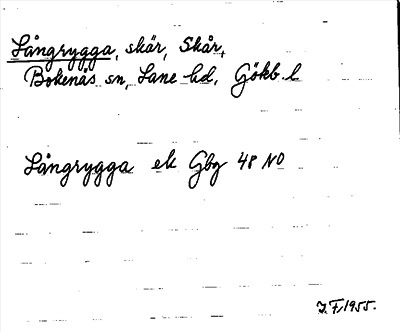 Långrygga, skär, Skår,
Bokenäs sn, Lane hd, Gökb. l
Långrygga ek Gbg 48 NO
J.F. 1955.